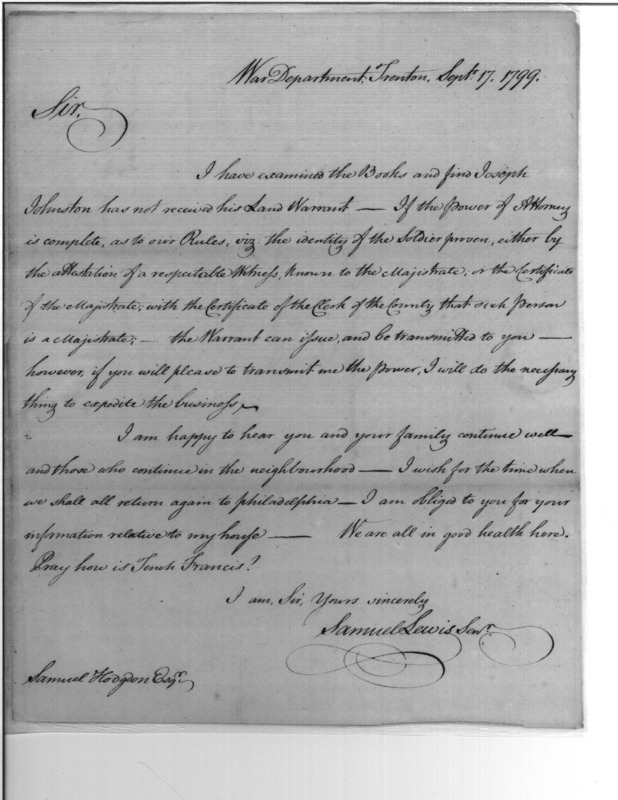 War Department, Trenton, Sept. 17. 1799.
Sir,
I have examined the Books and find Joseph
Johnston has not received his Land Warrant — If the Power of Attorney
is complete, as to our Rules, viz: the identity of the Soldier proven, either by
the attestation of a respectable Witness, known to the Majistrate; or the Certificate
of the Majistrate; with the Certificate of the Clerk of the County that such Person
is a Majistrate; — the Warrant can issue, and be transmitted to you —
however, if you will please to transmit me the Power, I will do the necessary
thing to expedite the business,
I am happy to hear you and your family continue well
and those who continue in the neighbourhood — I wish for the time when
we shall all return again to Philadelphia — I am obliged to you for your
information relative to my house — We are all in good health here.
Pray how is Tench Francis?
I am, Sir, Yours sincerely
Samuel Lewis Senr.
Samuel Hodgdon Esqr.